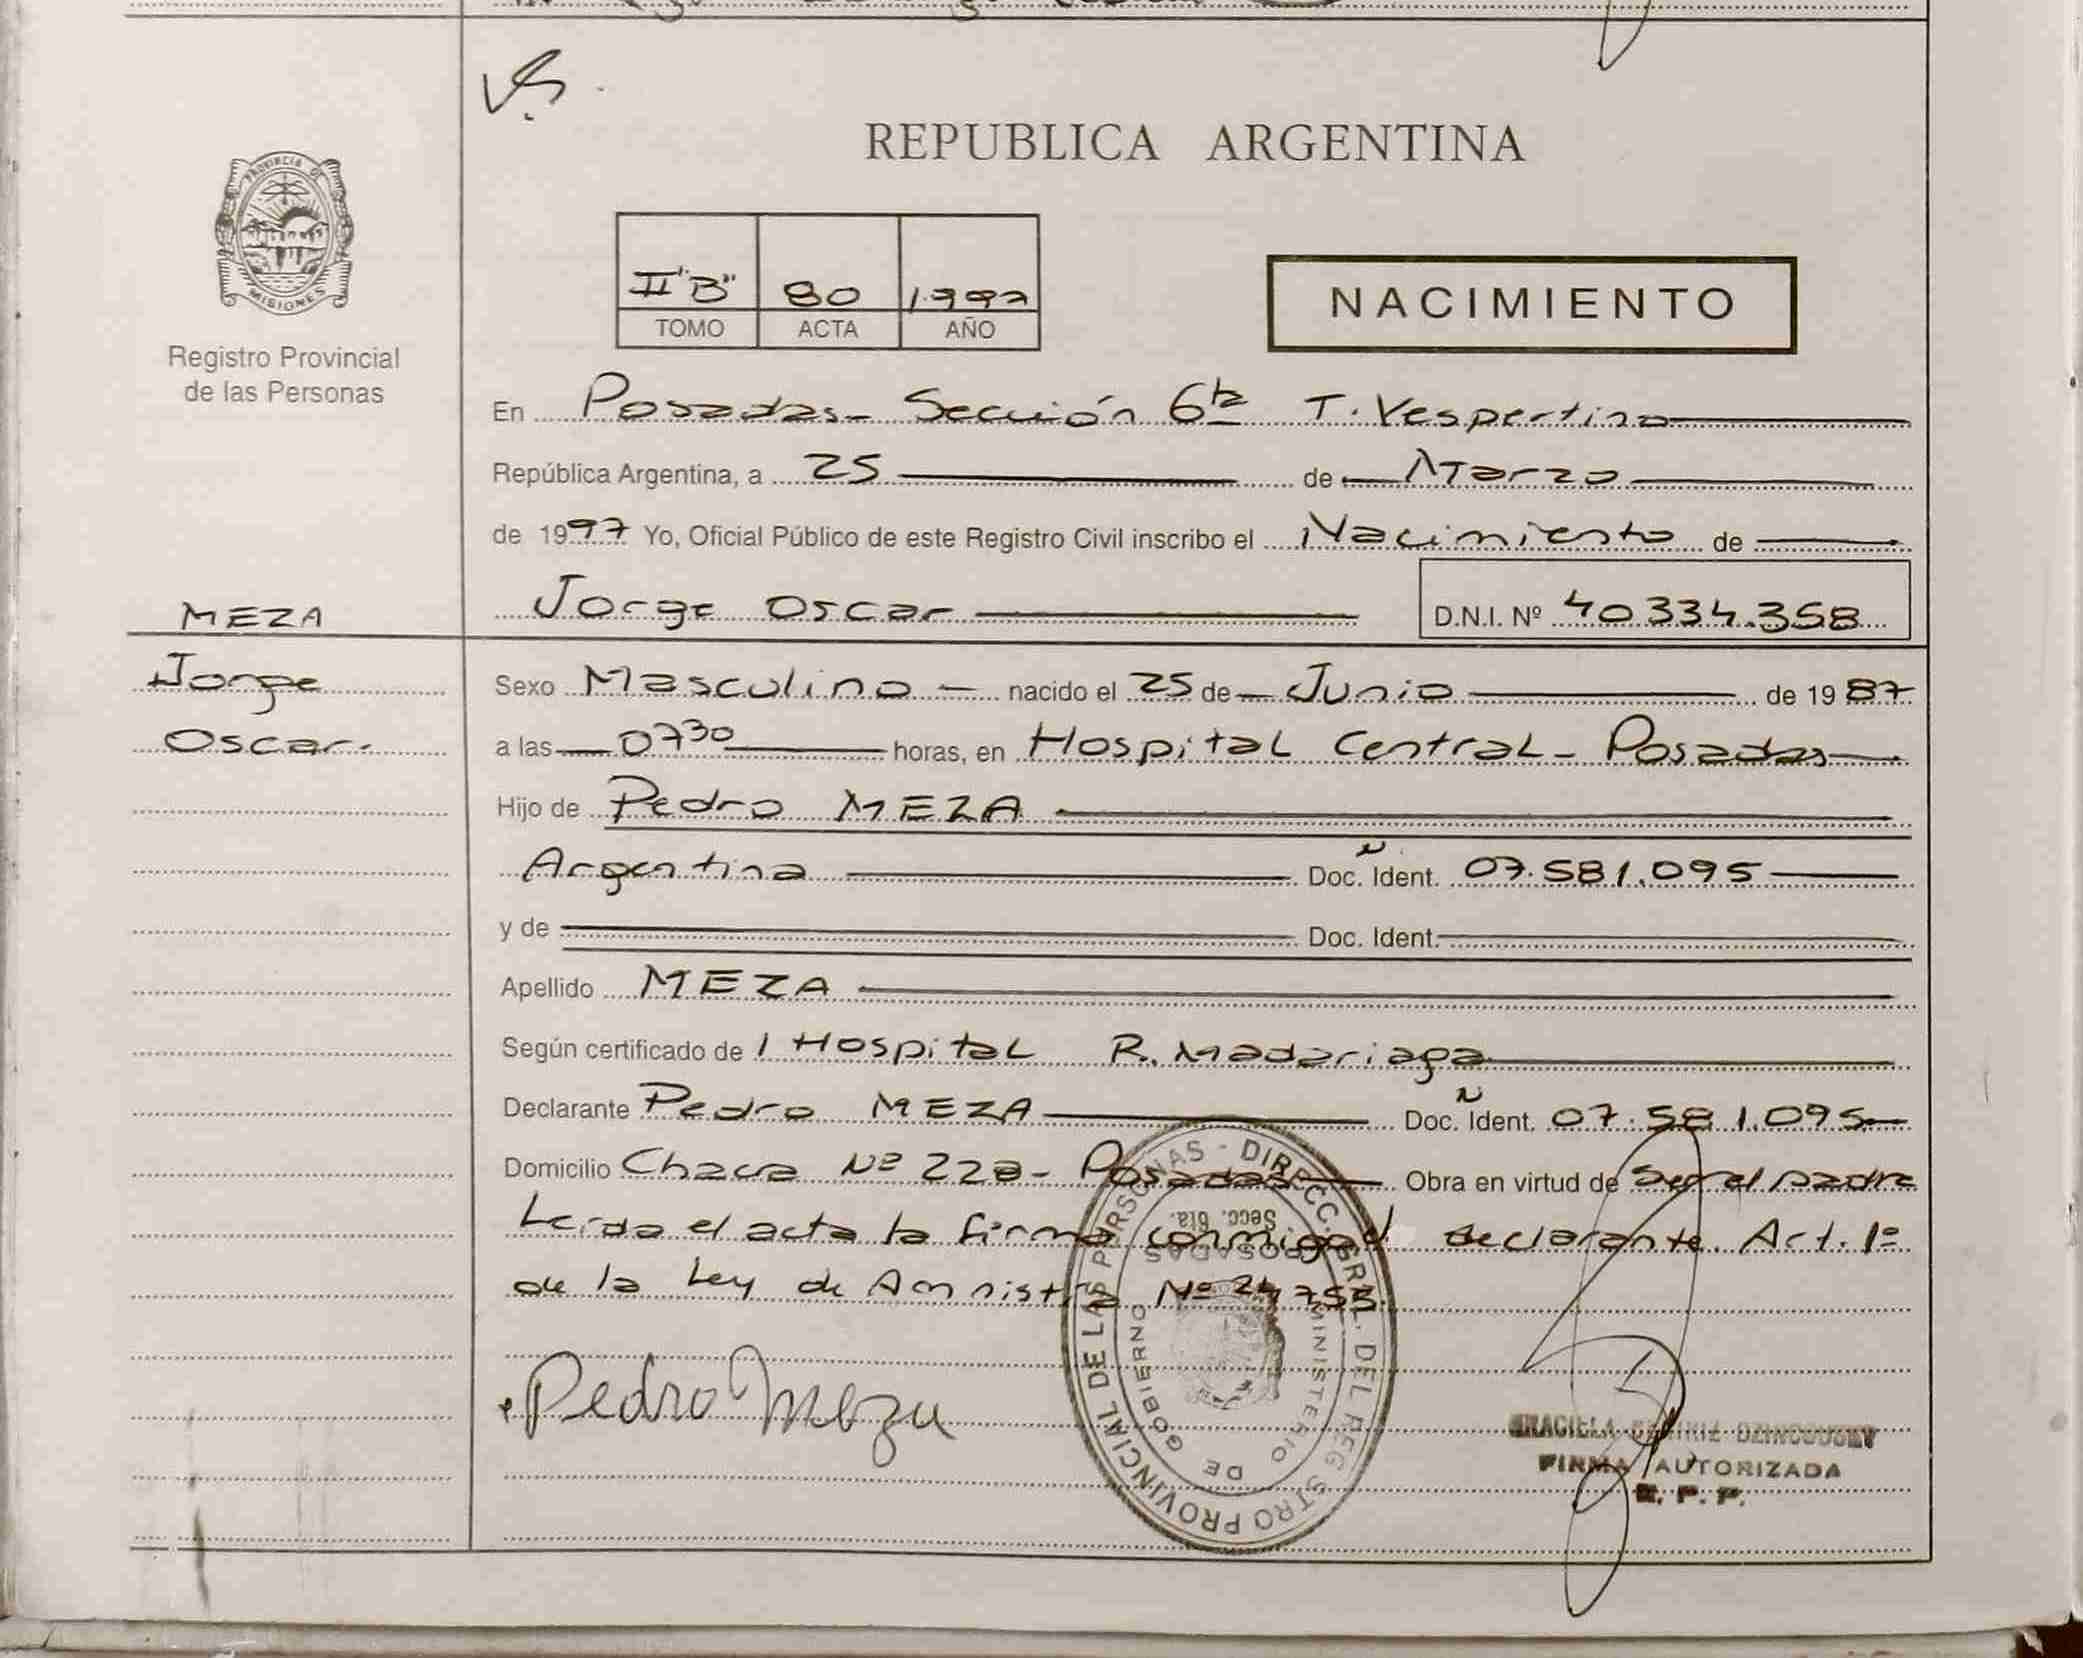 REPUBLICA ARGENTINA
PROVINCIA DE MISIONES
Registro Provincial
de las Personas
II "B" 80 1.997
TOMO ACTA AÑO
NACIMIENTO
En Posadas - Sección 6ta T. Vespertino
República Argentina, a 25 de Marzo
de 1997 Yo, Oficial Público de este Registro Civil inscribo el Nacimiento de
Jorge Oscar D.N.I. Nº 40334.358
MEZA
Jorge
Oscar.
Sexo Masculino - nacido el 25 de Junio de 1987
a las 0730 horas, en Hospital Central - Posadas
Hijo de Pedro MEZA
Argentina Doc. Ident. 07.581.095
y de Doc. Ident.
Apellido MEZA
Según certificado de l Hospital R. Madariaga
Declarante Pedro MEZA Doc. Ident. 07.581.095
Domicilio Chacra Nº 228 - Posadas Obra en virtud de ser el padre
Leída el acta la firma conmigo el declarante. Art. 1º
de la Ley de Amnistía Nº 24.755.
Pedro Meza
DIRECC. GRAL. DEL REGISTRO PROVINCIAL DE LAS PERSONAS -
MINISTERIO DE GOBIERNO
Secc. 6ta.
POSADAS
GRACIELA
FIRMA AUTORIZADA
R. P. P.